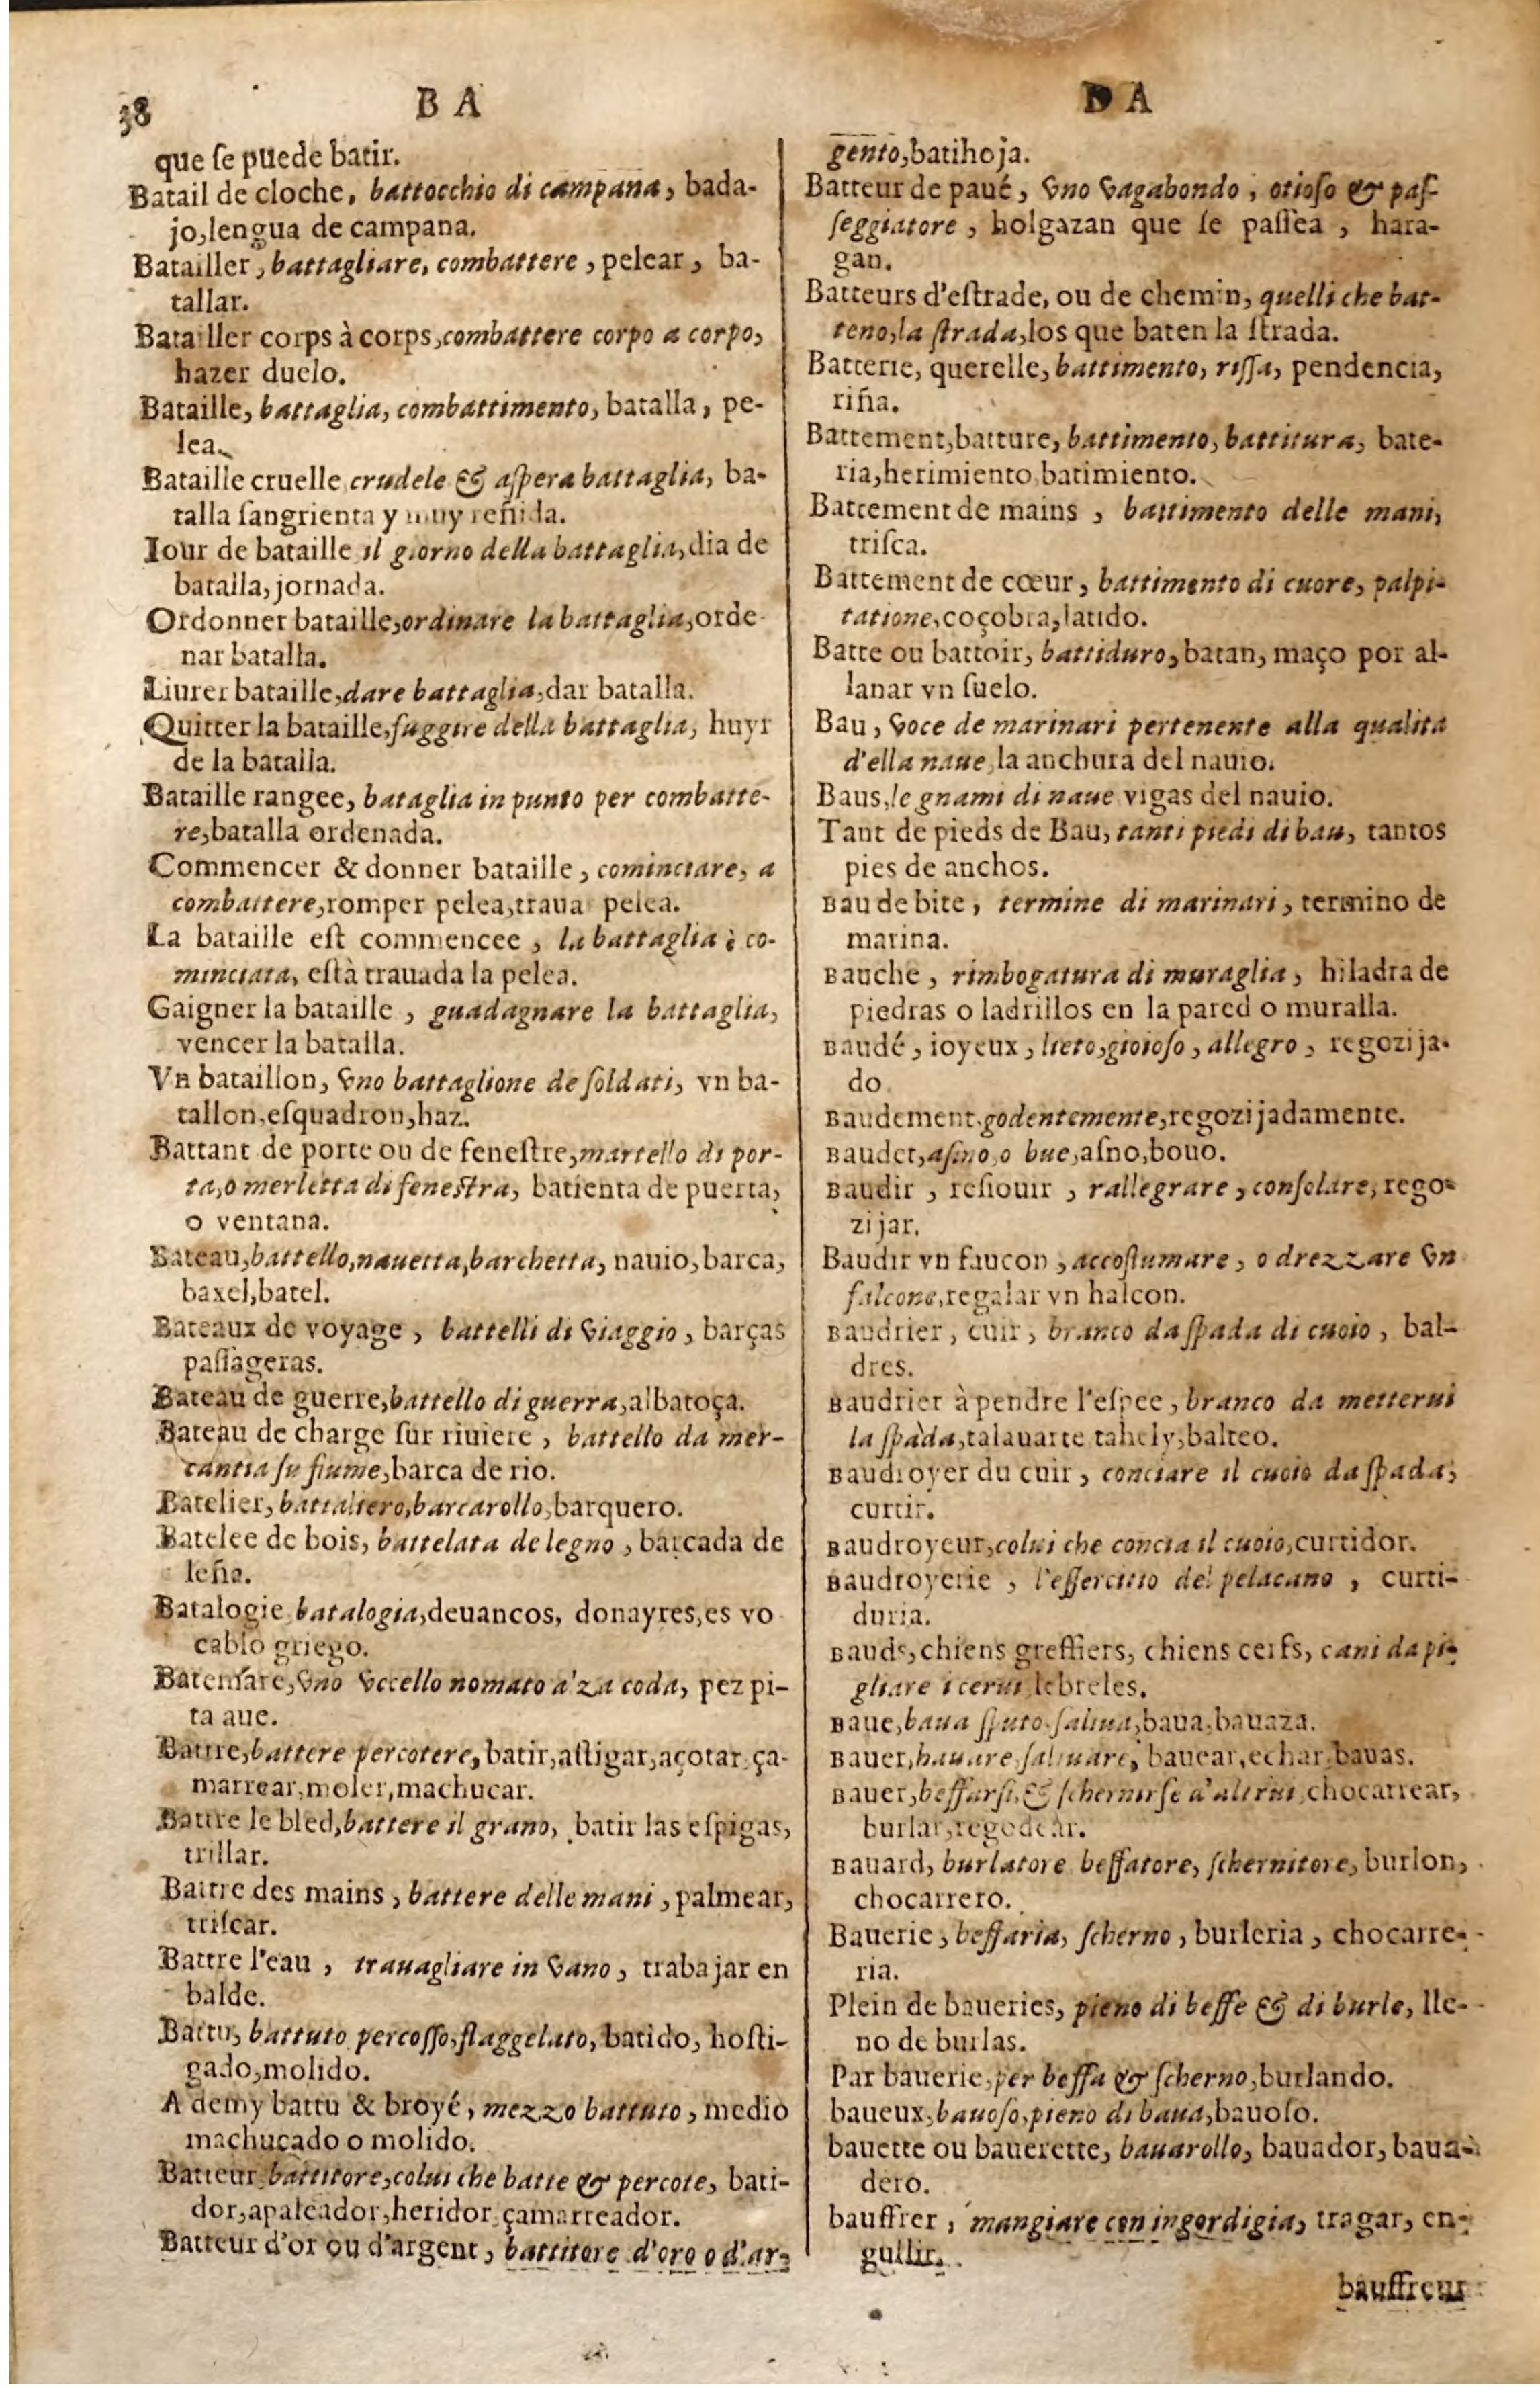 38
B A
que ſe puede batir.
Batail de cloche, battocchio di campana, bada-
jo, lengua de campana.
Batailler, battagliare, combattere, pelear, ba-
tallar.
Batailler corps à corps, combattere corpo a corpo,
hazer duelo.
Bataille, battaglia, combattimento, batalla, pe-
lea.
Bataille cruelle crudele & aſpera battaglia, ba-
talla ſangrienta y muy reñida.
Iour de bataille il giorno della battaglia, dia de
batalla, jornada.
Ordonner bataille, ordinare la battaglia, orde-
nar batalla.
Liurer bataille, dare battaglia, dar batalla.
Quitter la bataille, fuggire della battaglia, huyr
de la batalla.
Bataille rangee, bataglia in punto per combatte-
re, batalla ordenada.
Commencer & donner bataille, cominciare, a
combattere, romper pelea, trauar pelea.
La bataille eſt commencee, la battaglia è co-
minciata, eſtà trauada la pelea.
Gaigner la bataille, guadagnare la battaglia,
vencer la batalla.
Vn bataillon, vno battaglione de ſoldati, vn ba-
tallon, eſquadron, haz.
Battant de porte ou de feneſtre, martello di por-
ta, o merletta di feneſtra, batienta de puerta,
o ventana.
Bateau, battello, nauetta, barchetta, nauio, barca,
baxel, batel.
Bateaux de voyage, battelli di viaggio, barças
paſſageras.
Bateau de guerre, battello di guerra, albatoça.
Bateau de charge ſur riuiere, battello da mer-
cantia ſu fiume, barca de rio.
Batelier, battaliero, barcarollo, barquero.
Batelee de bois, battelata de legno, barcada de
leña.
Batalogie batalogia, deuaneos, donayres, es vo
cablo griego.
Batemare, vno vccello nomato alza coda, pez pi-
ta aue.
Battre, battere percotere, batir, aſtigar, açotar, ça-
marrear, moler, machucar.
Battre le bled, battere il grano, batir las eſpigas,
trillar.
Battre des mains, battere delle mani, palmear,
triſcar.
Battre l'eau, trauagliare in vano, trabajar en
balde.
Battu, battuto percoſſo, flaggelato, batido, hoſti-
gado, molido.
A demy battu & broyé, mezzo battuto, medio
machucado o molido.
Batteur battitore, colui che batte & percote, bati-
dor, apaleador, heridor, çamarreador.
Batteur d'or ou d'argent, battitore d'oro o d'ar-
B A
gento, batihoja.
Batteur de paué, vno vagabondo, otioſo & paſ-
ſeggiatore, holgazan que ſe paſſea, hara-
gan.
Batteurs d'eſtrade, ou de chemin, quelli che bat-
teno, la ſtrada, los que baten la ſtrada.
Batterie, querelle, battimento, riſſa, pendencia,
riña.
Battement, batture, battimento, battitura, bate-
ria, herimiento batimiento.
Battement de mains, battimento delle mani,
triſca.
Battement de cœur, battimento di cuore, palpi-
tatione, coçobra, latido.
Batte ou battoir, battiduro, batan, maço por al-
lanar vn ſuelo.
Bau, voce de marinari pertenente alla qualita
d'ella naue, la anchura del nauio.
Baus, legnami di naue vigas del nauio.
Tant de pieds de Bau, tanti piedi di bau, tantos
pies de anchos.
Bau de bite, termine di marinari, termino de
marina.
Bauche, rimbogatura di muraglia, hiladra de
piedras o ladrillos en la pared o muralla.
Baudé, ioyeux, lieto, gioioſo, allegro, regozija-
do.
Baudement, godentemente, regozijadamente.
Baudet, aſino, o bue, aſno, bouo.
Baudir, reſiouir, rallegrare, conſolare, rego-
zijar.
Baudir vn faucon, accoſtumare, o drezzare vn
falcone, regalar vn halcon.
Baudrier, cuir, branco da ſpada di cuoio, bal-
dres.
Baudrier à pendre l'eſpee, branco da metterui
la ſpada, talauarte tahely, balteo.
Baudroyer du cuir, conciare il cuoio da ſpada,
curtir.
Baudroyeur, colui che concia il cuoio, curtidor.
Baudroyerie, l'eſſercitio del pelacano, curti-
duria.
Bauds, chiens greffiers, chiens cerfs, cani da pi-
gliare i cerui lebreles.
Baue, baua ſputo, ſaliua, baua, bauaza.
Bauer, bauare ſaliuare, bauear, echar bauas.
Bauer, beffarſi, & ſchernirſe d'altrui, chocarrear,
burlar, regodear.
Bauard, burlatore beffatore, ſchernitore, burlon,
chocarrero.
Bauerie, beffaria, ſcherno, burleria, chocarre-
ria.
Plein de baueries, pieno di beffe & di burle, lle-
no de burlas.
Par bauerie, per beffa & ſcherno, burlando.
baueux, bauoſo, pieno di baua, bauoſo.
bauette ou bauerette, bauarollo, bauador, baua-
dero.
bauffrer, mangiare con ingordigia, tragar, en-
gullir.
bauffreur